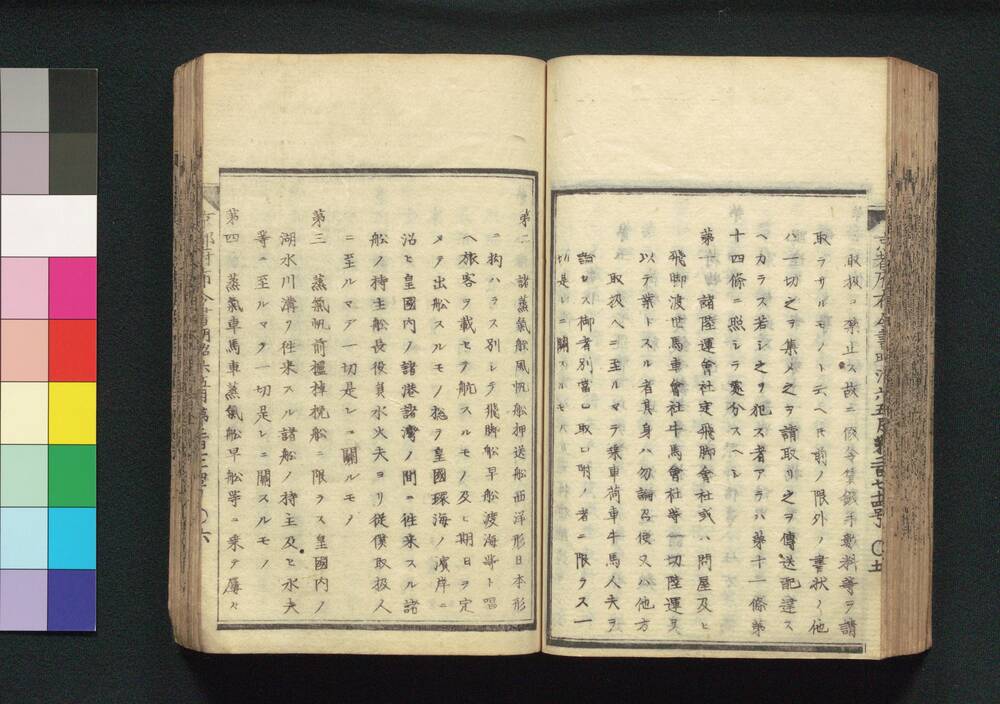 取扱ヲ禁止ス故ニ假令集錢手數料等ヲ請
取ラサルモノト云ヘ𪜈前ノ限外ノ書状ノ他
ハ一切之ヲ集メ之ヲ請取リ之ヲ傳送配達ス
ヘカラス若シ之ヲ犯ス者アラハ第十一條第
十四條ニ照シテ處分スヘシ
第一 諸陸運會社定飛脚會社或ハ問屋及ヒ
飛脚渡世馬車會社牛馬會社等一切陸運又
以テ業トスル者其身ハ勿論召使又ハ他方
取扱人ニ至ルマテ乗車荷車牛馬人夫ヲ
論セス御者別當口取口附ノ者ニ限ラス一
切是レニ關スルモノ
第二 諸蒸氣船風帆船押送船西洋形日本形
ニ拘ハラス別シテ飛脚船早船渡海等ト唱
ヘ旅客ヲ載セテ航スルモノ及ヒ期日ヲ定
メテ出船スルモノ抔ヲ皇國環海ノ濱岸ニ
沿ヒ皇國内ノ諸港諸灣ノ間ニ往来スル諸
船ノ持主船長役員水火夫ヨリ從僕取扱人
ニ至ルマデ一切是レニ關ルモノ
第三 蒸氣帆前櫓棹挽船ニ限ラス皇國内ノ
湖水川溝ヲ往来スル諸船ノ持主及ヒ水夫
等ニ至ルマテ一切是レニ關スルモノ
第四 蒸氣車馬車蒸氣船早船等ニ乗テ屡々